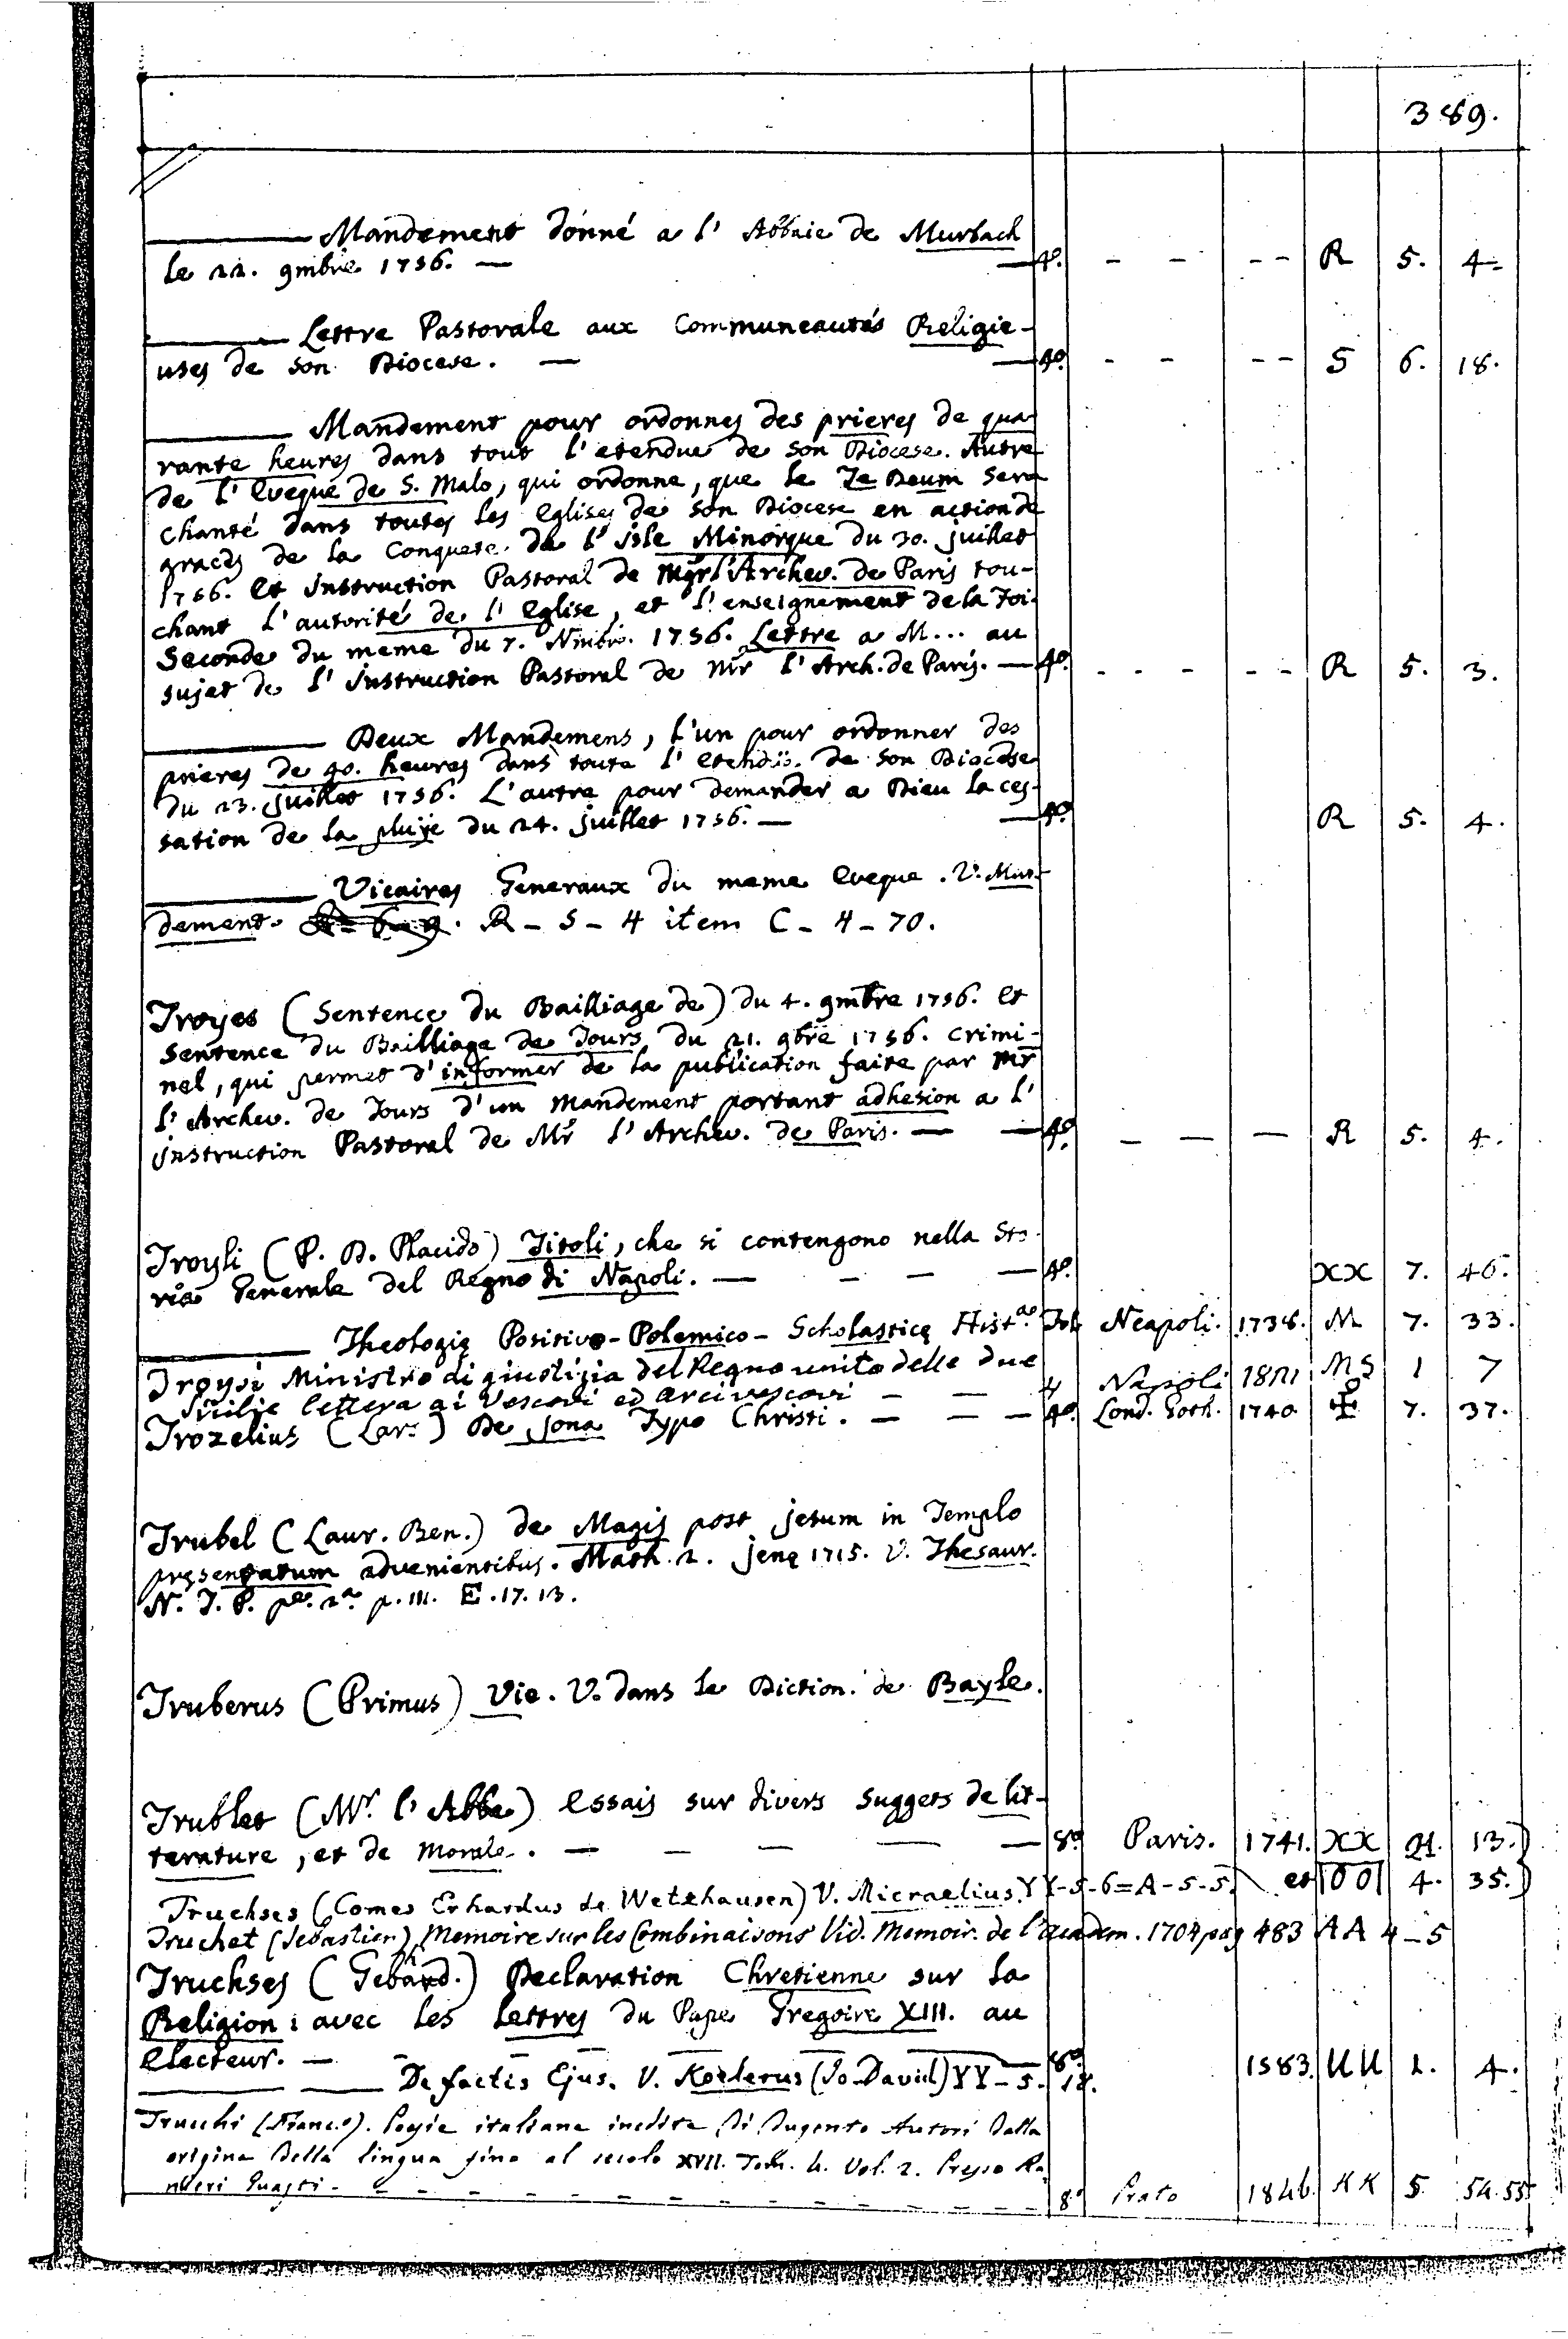 389.
——— Mandement donné a l' Abbaie de Murbach
le 22. 9mbre 1756. — — 4º. - - - - R 5. 4.
——— Lettre Pastorale aux Communeautés Religie-
uses de son Diocese. — — 4º. - - - - S 6. 18.
——— Mandement pour ordonner des prieres de qua-
rante heures dans tout l' etendue de son Diocese. Autre
de l' Eveque de S. Malo, qui ordonne, que le Te Deum sera
chanté dans toutes les Eglises de son Diocese en action de
graces de la Conquete de l' Isle Minorque du 30. juillet
1756. Et Instruction Pastoral de Mgr l' Archev. de Paris tou-
chant l' autorité de l' Eglise, et l' enseignement de la Foi.
Seconde du meme du 7. Nmbre. 1756. Lettre a M... au
sujet de l' Instruction Pastoral de Mr l' Arch. de Paris. — 4º. - - - - - R 5. 3.
——— Deux Mandemens, l'un pour ordonner des
prieres de 40. heures dans toute l' etendüe de son Diocese
du 23. juillet 1756. L'autre pour demander a Dieu la ces-
sation de la pluije du 24. juillet 1756. — — 4º. R 5. 4.
——— Vicaires Generaux du meme Eveque. V. Man-
dement. R - 5 - 4 item C - 4 - 70.
Troyes (Sentence du Bailliage de) du 4. 9mbre 1756. et
Sentence du Bailliage de Tours du 21. 9bre 1756. crimi-
nel, qui permet d' informer de la publication faite par Mr
l' Archev. de Tours d'un Mandement portant adhesion a l'
Instruction Pastoral de Mr l' Archev. de Paris. — — 4º. — — — R 5. 4.
Troyli (P. D. Placido) Titoli, che si contengono nella Sto-
ria Generale del Regno di Napoli. — — — — 4º. XX 7. 46.
——— Theologię Positivo-Polemico-Scholasticę Hist.ae Fol. Neapoli. 1738. M 7. 33.
Troysi Ministro di giustizia del Regno unito delle due
Sicilie lettera ai Vescovi ed Arcivescovi — — 4 Napoli 1821 MS 1 7
Trozelius (Lar.s) De Jona Typo Christi. — — — 4º. Lond. Goth. 1740. 7. 37.
Trubel (Laur. Ben.) de Magis post jesum in Templo
pręsentatum advenientibus. Math. 2. Jenę 1715. V. Thesaur.
N. T. P. pe. 2a. p. 111. E. 17. 13.
Truberus (Primus) Vie. V. dans le Diction. de Bayle.
Trublet (Mr. l' Abbe) Essais sur divers suggets de lit-
terature, et de Morale. — — — — — 8º. Paris. 1741. XX 21. 13.
Truchses (Comes Erhardus de Wetzhausen) V. Micraelius. YY-5-6=A-5-5. et OO 4. 35.
Truchet (Sebastien) Memoire sur les Combinaisons Vid. Memoir. de l'academ. 1704 pag 483 AA 4-5
Truchses (Gebhard.) Declaration Chretienne sur la
Religion: avec les Lettres du Pape Gregoire XIII. au
Electeur. — — — — — — — 8º. 1583. UU 2. 4.
——— De factis Ejus. V. Koelerus (Jo-David) YY-5. 18.
Trucchi (Franc.o). Poesie italiane inedite Di Dugento Autori Dalla
origine Della lingua fino al secolo XVII. Tom. 4. Vol. 2. Presso Ra-
nieri Guasti - - - - - - - - - - - - 8º Prato 1846. KK 5 54.55